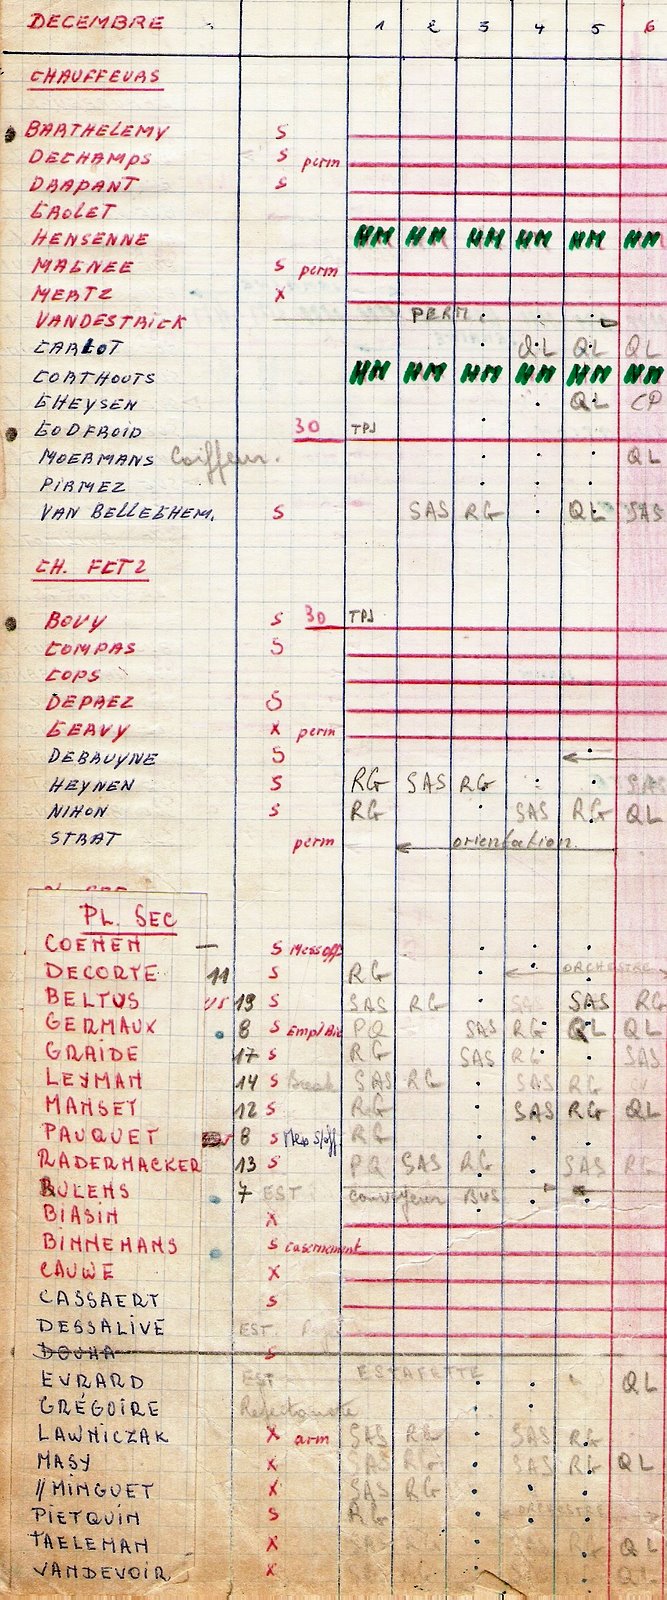 DECEMBRE 1 2 3 4 5 6
CHAUFFEURS
BARTHELEMY S
DECHAMPS S perm
DRAPANT S
GROLET
HENSENNE HM HM HM HM HM HM
MAGNEE S perm
MERTZ X
VANDESTRICK PERM
CARLOT QL QL QL
CORTHOUTS HM HM HM HM HM HM
GHEYSEN QL CP
GODFROID 30 TPJ
MOERMANS Coiffeur. QL
PIRMEZ
VAN BELLEGHEM. S SAS RG QL SAS
CH. FCTZ
BOVY S 30 TPJ
COMPAS S
COPS
DEPREZ S
GEAVY X perm
DEBRUYNE S
HEYNEN S RG SAS RG SAS
NIHON S RG SAS RG QL
STRAT perm orientation.
PL. SEC
COENEN S Mess off
DECORTE 11 S RG ORCHESTRE
BELTUS US 19 S SAS RG SAS SAS RG
GERMAUX 8 S PQ SAS RG QL QL
GRAIDE 17 S RG SAS RG SAS
LEYMAN 14 S Break SAS RG SAS RG
MANSET 12 S RG SAS RG QL
PAUQUET 8 S Mess S/off RG
RADERMACKER 13 S PQ SAS RG SAS RG
RULENS 7 EST convoyeur BUS
BIASIN X
BINNEMANS S casernement
CAUWE X
CASSAERT S
DESSALIVE EST.
DOUHA S
EVRARD EST ESTAFETTE QL
GRÉGOIRE
LAWNICZAK X arm SAS RG SAS RG
MASY X SAS RG SAS RG QL
// MINGUET X SAS RG
PIETQUIN S RG ORCHESTRE
TAELEMAN X SAS RG SAS RG QL
VANDEVOIR X QL